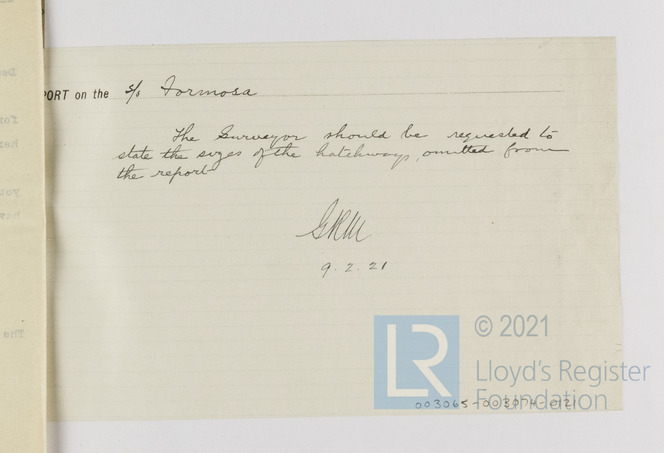 PORT on the s/s Formosa
The Surveyor should be requested to
state the sizes of the hatchways, omitted from
the report
GRM
9.2.21
LR
© 2021
Lloyd's Register
Foundation
003065-003074-0121